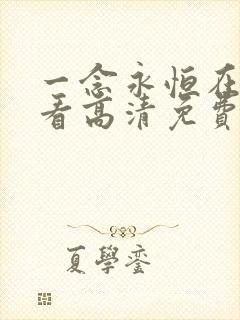 一念永恒在
看高清免費
夏學鑾